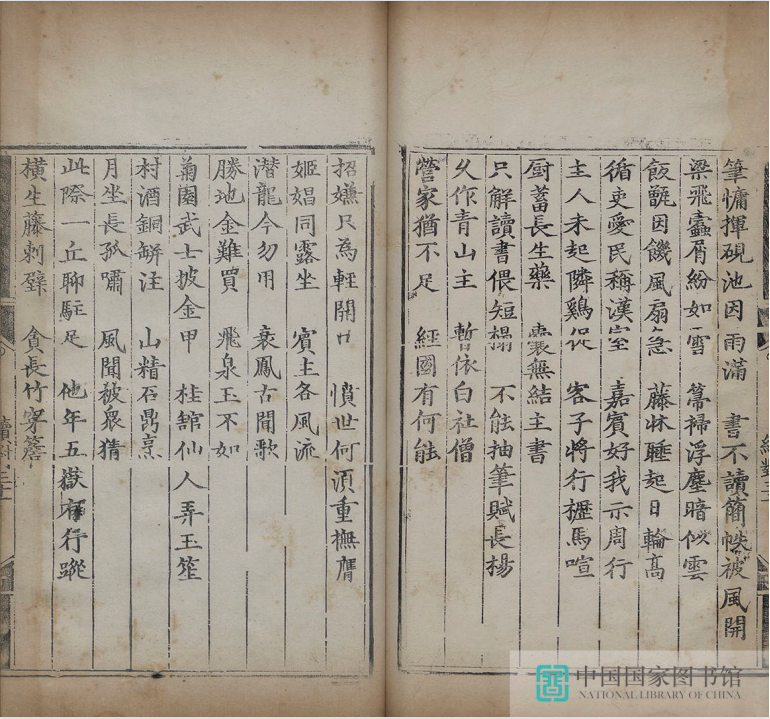 筆慵揮硯池因雨滿　書不讀簡帙被風開
梁飛蠹屑紛如雪　箒掃浮塵暗似雲
飯甑因饑風扇急　藤牀睡起日輪高
循吏愛民稱漢室　嘉賓好我示周行
主人未起隣鷄促　客子將行櫪馬喧
厨蓄長生藥　囊無結主書
只解讀書偎短榻　不能抽筆賦長楊
久作青山主　暫依白社僧
營家猶不足　經國有何能
招嫌只為輕開口　憤世何須重撫膺
姬娼同露坐　賓主各風流
潛龍今勿用　衰鳳古聞歌
勝地金難買　飛泉玉不如
菊園武士披金甲　桂舘仙人弄玉笙
村酒銅缾注　山精石鼎烹
月坐長孤嘯　風聞被衆猜
此際一丘聊駐足　他年五嶽有行蹤
橫生藤刺壁　貪長竹穿簷
中国国家图书馆
NATIONAL LIBRARY OF CHINA